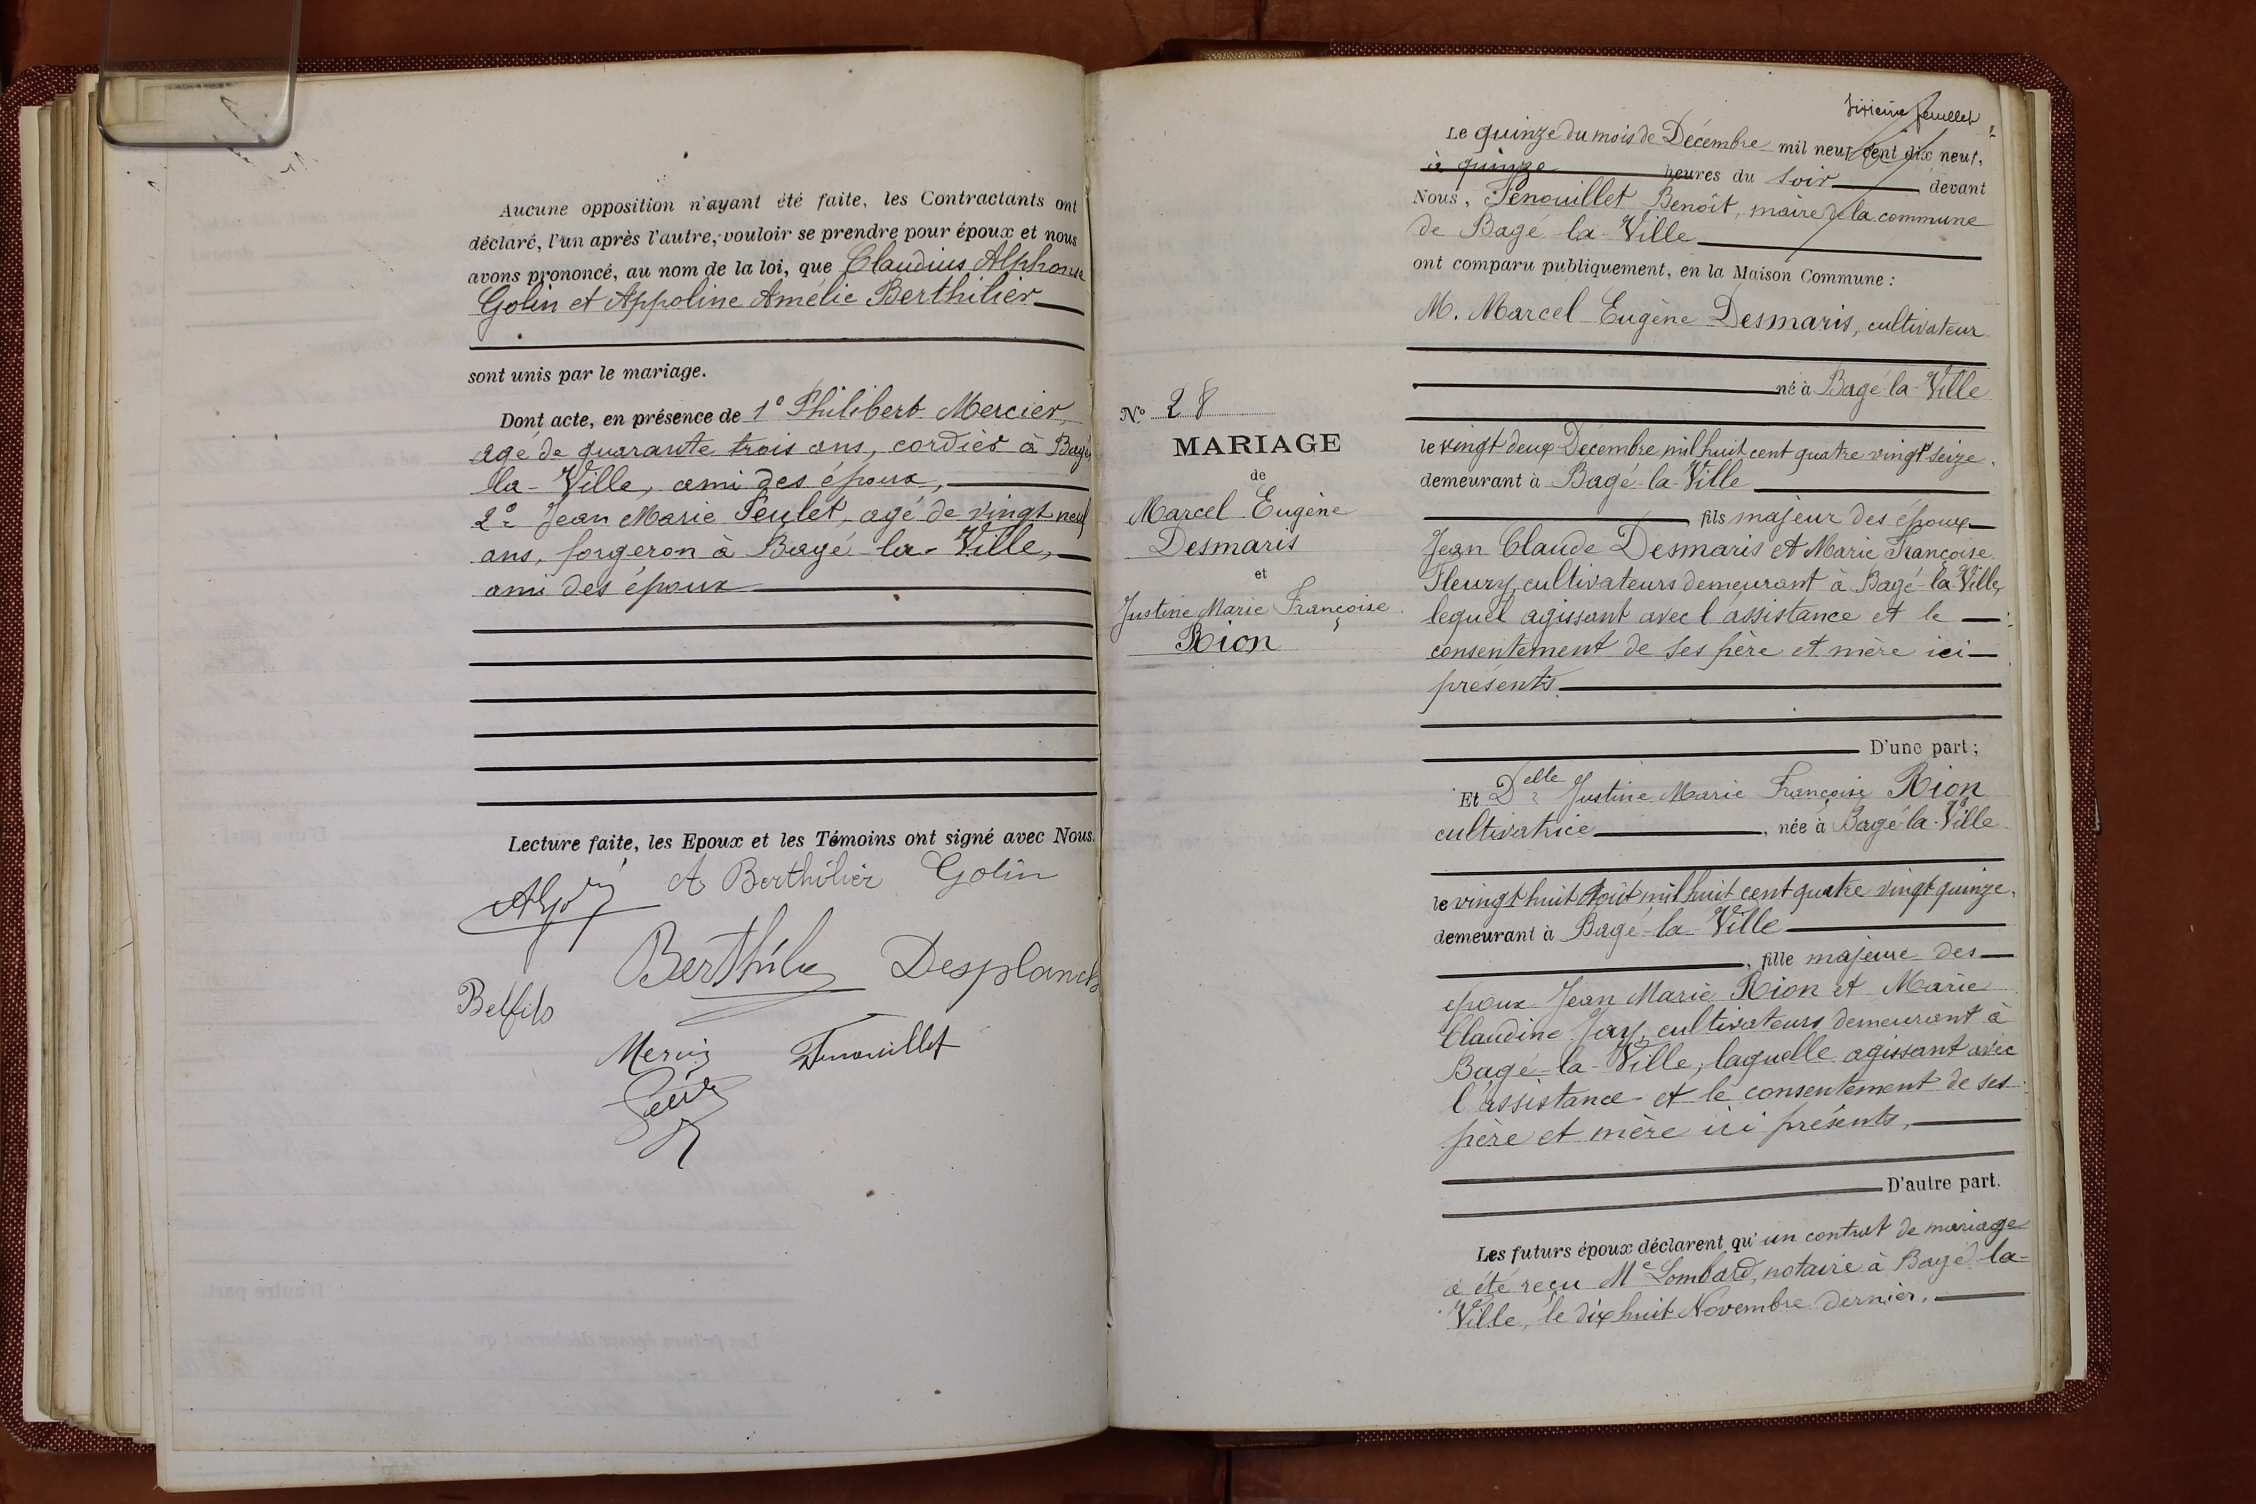 Aucune opposition n'ayant été faite, les Contractants ont
déclaré, l'un après l'autre, vouloir se prendre pour époux et nous
avons prononcé, au nom de la loi, que Claudius Alphonse
Golin et Appoline Amélie Berthilier
sont unis par le mariage.
Dont acte, en présence de 1° Philibert Mercier,
agé de quarante trois ans, cordier à Bagé
la-Ville, ami des époux,
2° Jean Marie Feulet, agé de vingt neuf
ans, forgeron à Bagé-la-Ville,
ami des époux
Lecture faite, les Epoux et les Témoins ont signé avec Nous.
A Berthilier Golin
Desplanch
Belfils
Mercier Fenouillet
N° 28
MARIAGE
de
Marcel Eugène
Desmaris
et
Justine Marie Françoise
Rion
feuillet
Le quinze du mois de Décembre mil neuf cent dix neuf,
à quinze heures du soir devant
Nous, Fenouillet Benoît, maire de la commune
de Bagé-la-Ville
ont comparu publiquement, en la Maison Commune :
M. Marcel Eugène Desmaris, cultivateur
né à Bagé-la-Ville
le vingt deux Décembre mil huit cent quatre vingt seize,
demeurant à Bagé-la-Ville
, fils majeur des époux
Jean Claude Desmaris et Marie Françoise
Fleury, cultivateurs demeurant à Bagé-la-Ville,
lequel agissant avec l'assistance et le
consentement de ses père et mère ici
présents.
D'une part ;
Et Delle Justine Marie Françoise Rion
cultivatrice , née à Bagé-la-Ville
le vingt huit Août mil huit cent quatre vingt quinze,
demeurant à Bagé-la-Ville
, fille majeure des
époux Jean Marie Rion et Marie
Claudine Jay, cultivateurs demeurant à
Bagé-la-Ville, laquelle agissant avec
l'assistance et le consentement de ses
père et mère ici présents,
D'autre part.
Les futurs époux déclarent qu'un contrat de mariage
a été reçu Me Lombard, notaire à Bagé-la-
Ville, le dix huit Novembre dernier.